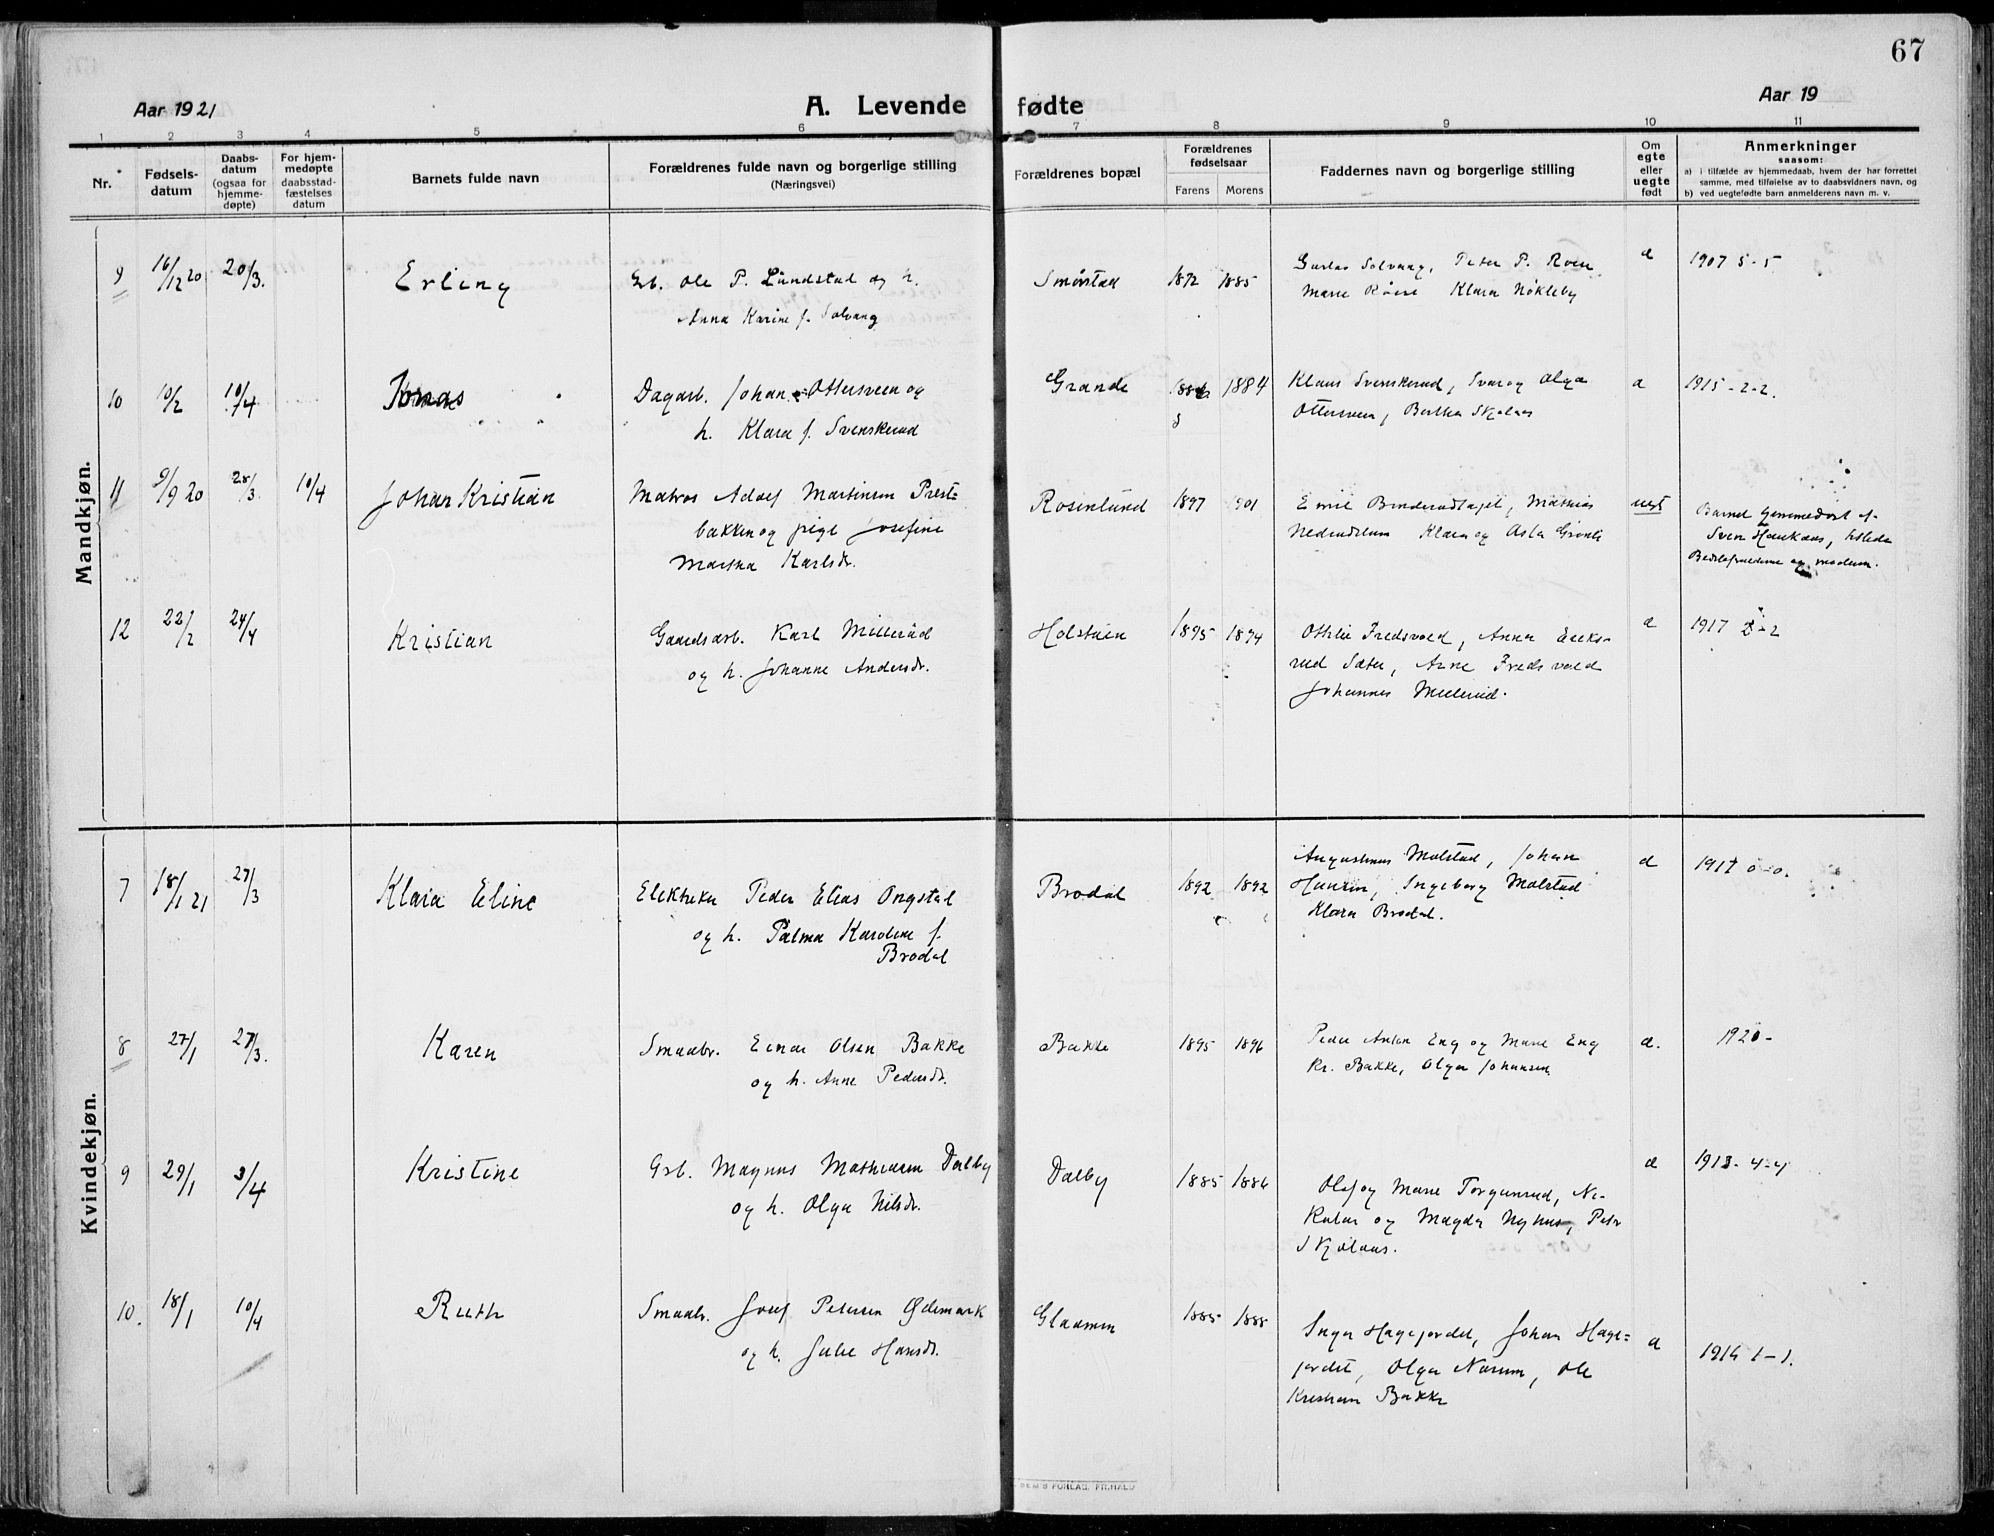 67
Aar 1921
A. Levende fødte
Aar 19
1 2 3 4 5 6 7 8 9 10 11
Nr.
Fødsels-
datum
Daabs-
datum
(ogsaa for
hjemme-
døpte)
For hjem-
medøpte
daabsstad-
fæstelses
datum
Barnets fulde navn
Forældrenes fulde navn og borgerlige stilling
(Næringsvei)
Forældrenes bopæl
Forældrenes
fødselsaar
Farens Morens
Faddernes navn og borgerlige stilling
Om
egte
eller
uegte
født
Anmerkninger
saasom:
a) i tilfælde av hjemmedaab, hvem der har forrettet
samme, med tilføielse av to daabsvidners navn, og
b) ved uegtefødte barn anmelderens navn m. v.
Mandkjøn.
9 16/12 20 20/3. Erling Gb. Ole P. Lundstad og h. Smørstad 1872 1885 Solvang, Peter P. Roen 1907 5-5
Anna Karine f. Solvang
Marie Klara Nøkleby
10 10/2 10/4 Jonas Dagarb. Johan Ottersveen og Grande 1884 Klaus Svenskerud, Svar og Olga 1915-2-2.
h. Klara f. Svenskerud
Ottersveen, Berthe Skjelaas
11 9/9 20 28/3. 10/4 Johan Kristian Matros Adolf Martinsen Prest- Rosenlund 1897 1901 Emil Mathias uegt
bakken og pige Josefine
Klara og Asta
Martha Karlsdr.
Barnet hjemmedøpt af
Sven Haukaas, tilstede
Bedsteforældrene og moderen.
12 22/2 24/4 Kristian Gaardsarb. Karl Millerud Holstuen 1895 1894 Othilie Fredsvold, Anna Eriks- 1917 2-2
og h. Johanne Andersdr.
rud Sæter, Arne Fredsvold
Johannes Millerud.
Kvindekjøn.
7 18/1 21 27/3 Klara Eline Elektriker Peder Elias Ongstad Brodal 1892 1892 Augustinus Molstad, Johan 1917 0-0.
Hansen, Ingeborg Molstad
og h. Palma Karoline f.
Klara Brodal.
Brodal
8 27/1 27/3. Karen Smaabr. Einar Olsen Bakke Bakke 1895 1896 Peder Anton Eng og Marie Eng 1920-
og h. Anne Pedersdr.
Kr. Bakke, Olga Johansen
9 29/1 3/4 Kristine Grb. Magnus Mathiesen Dalby Dalby 1885 1886 1913-4-4
og h. Olga Nilsdr.
Olaf og Marie Torgunrud, Ni-
kolai og Magda Nyhus, Petr
Skjelaas.
10. 18/1 10/4 Ruth Smaabr. Josef Petersen Ødemark Gladmon 1885 1888
og h. Julie Hansdr.
Inga Hagejordet, Johan Hage-
jordet, Olga Narum, Ole 1914 1-1.
Kristian Bakke
FORLAG. FR.HALD